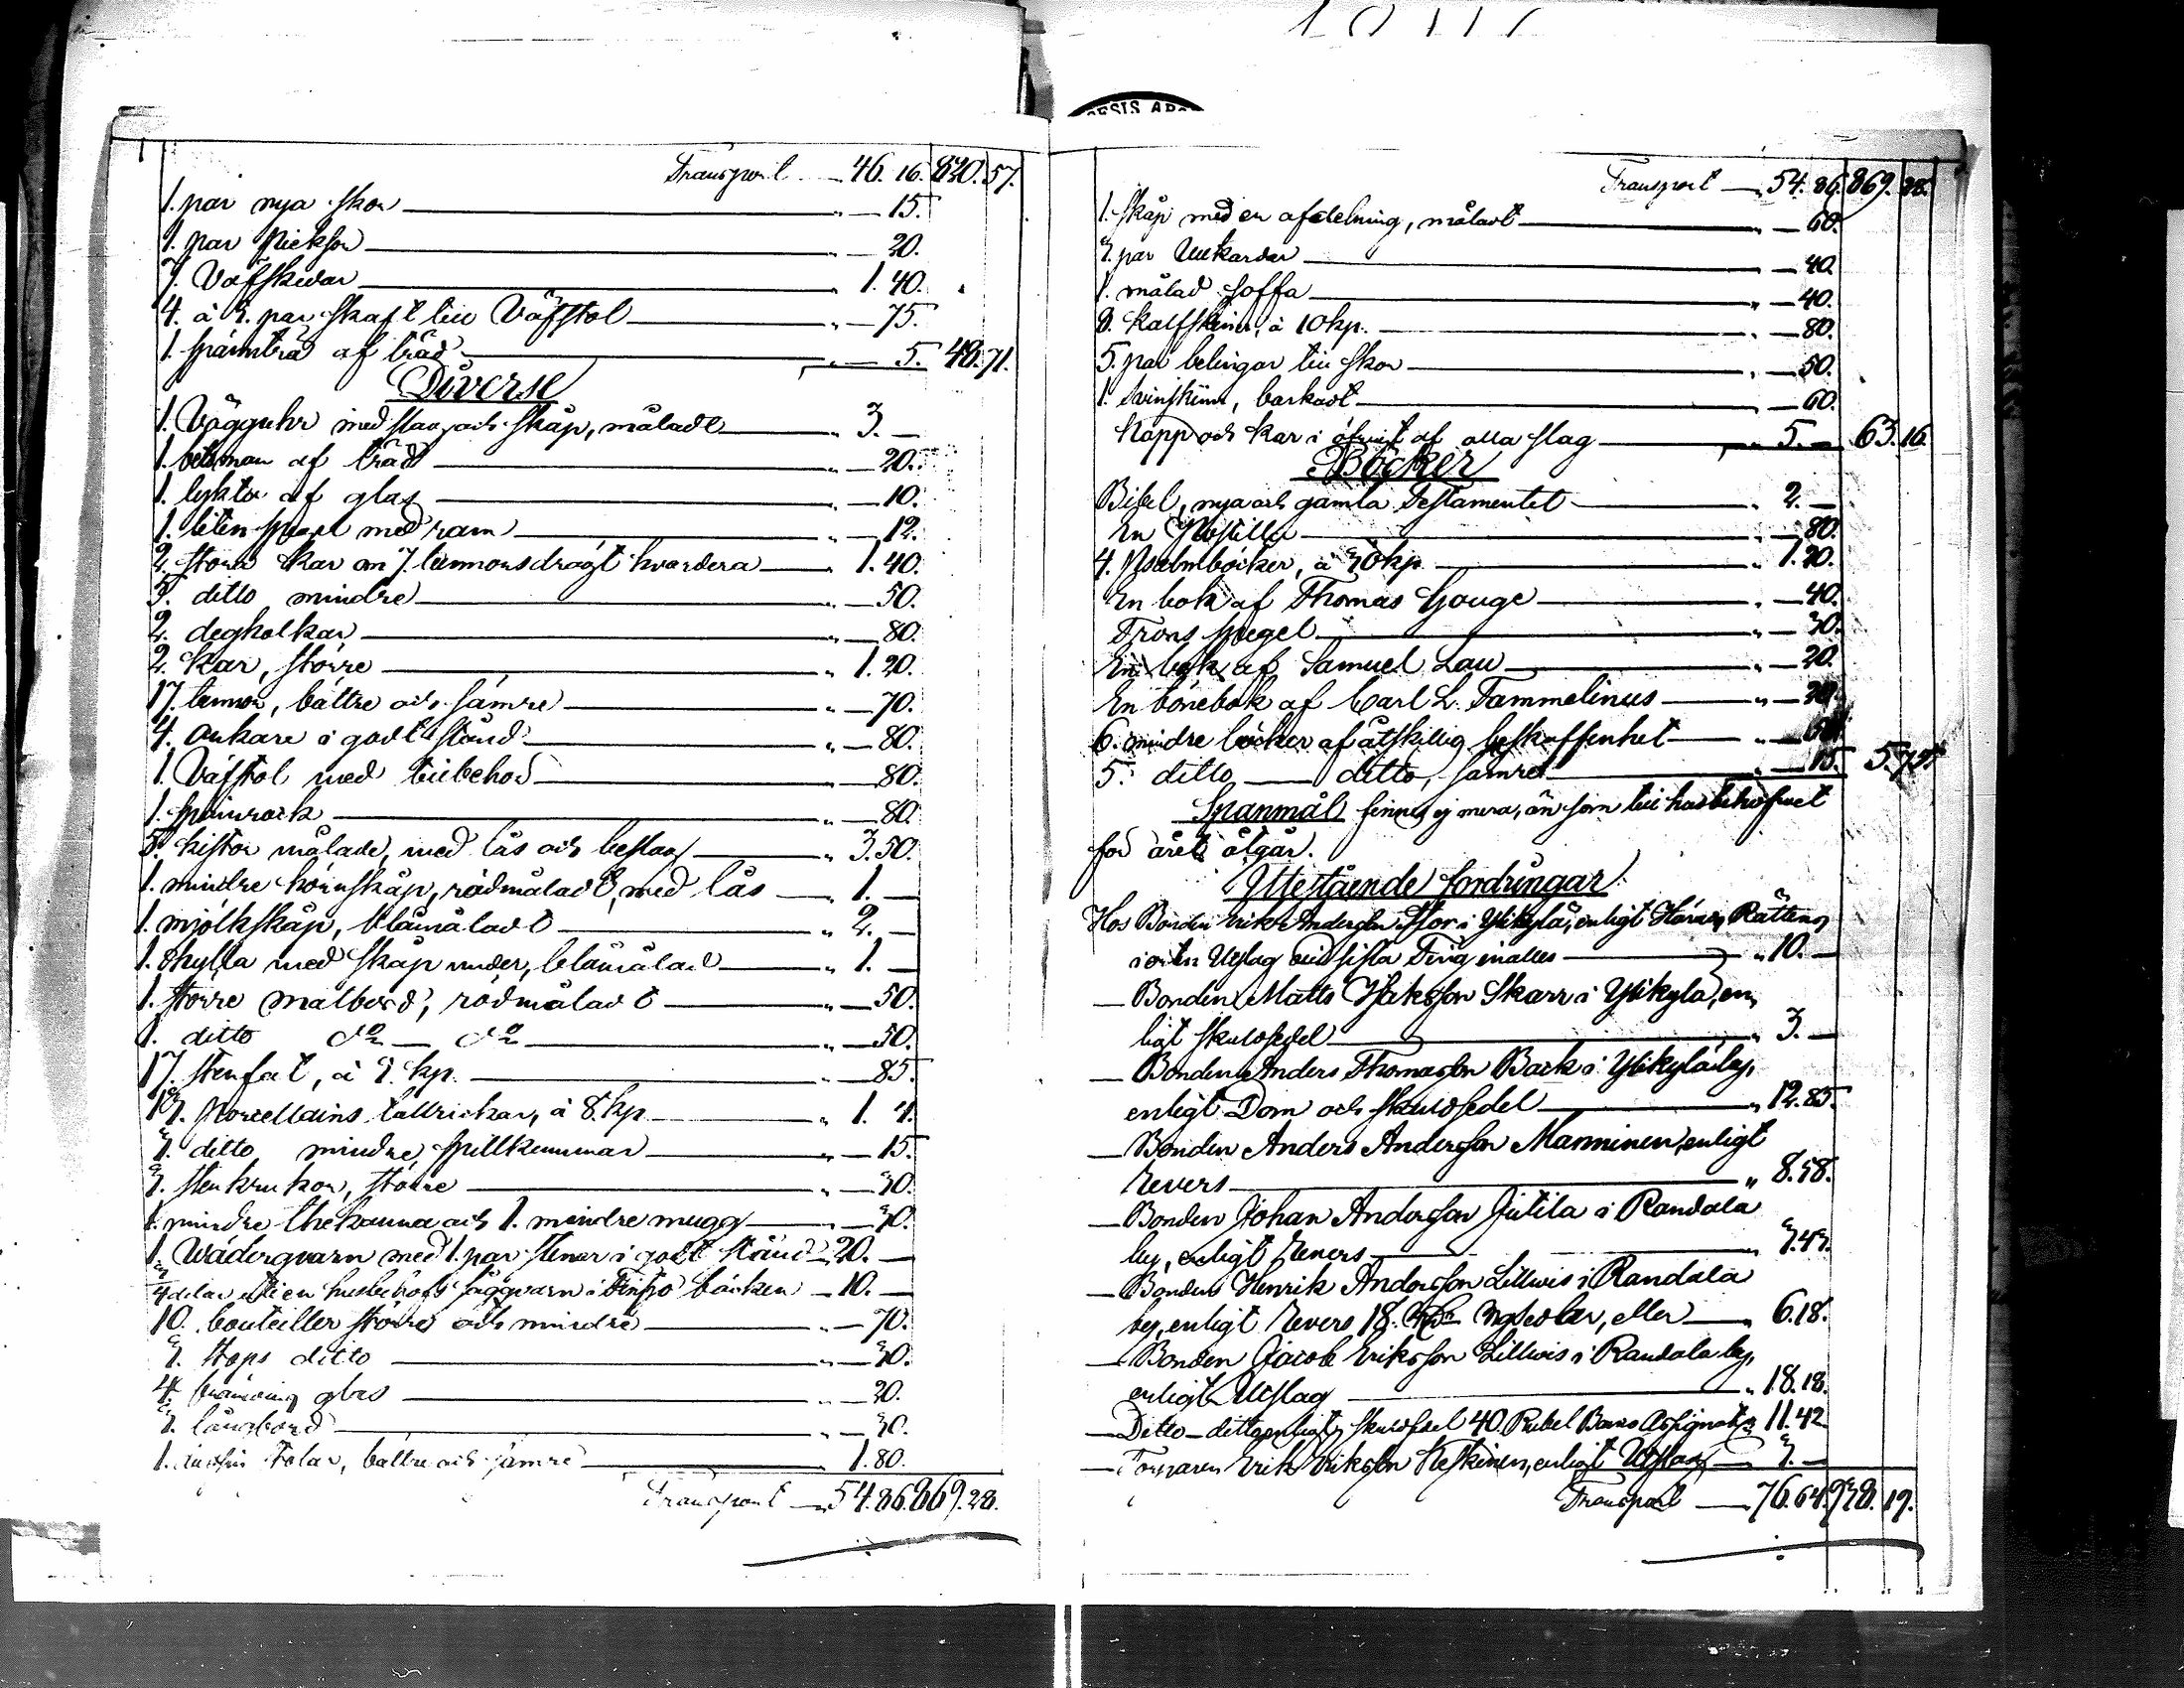 Transport — 46. 16. 820. 57.
1. par nya skor — „ — 15.
1. par Pieksor — „ — 20.
7. Väfskedar — „ 1. 40.
4. à 5. par skaft till Väfstol — „ — 75.
1. spännträd af träd — „ — 5. 48. 71.
Diverse
1. Vägguhr med slag och skåp, måladt — „ 3. —
1. betsman af träd — „ — 20.
1. lykta af glas — „ — 10.
1. liten spegel med ram — „ — 12.
2. stora kar om 7. tunnors drägt hvardera — „ 1. 40.
5. ditto mindre — „ — 50.
2. degkolkar — „ — 80.
2. kar, större — „ 1. 20.
17. tunnor, bättre och sämre — „ — 70.
4. ankare i godt stånd — „ — 80.
1. Väfstol med tillbehör — „ — 80.
1. spinrock — „ — 80.
5. kistor målade, med lås och beslag — „ 3. 50.
1. mindre hörnskåp, rödmåladt, med lås — „ 1. —
1. mjölkskåp, blåmåladt — „ 2. —
1. hylla med skåp under, blåmålad — „ 1. —
1. större matbord, rödmåladt — „ — 50.
1. ditto do — do — „ — 50.
17. stenfat, à 5. kp. — „ — 85.
13. porcellains tallrickar, à 8. kp — „ 1. 4.
3. ditto mindre spillkummar — „ — 15.
3. stenkrukor, större — „ — 30.
1. mindre thekanna och 1. mindre mugg — „ — 30.
1. Wäderqvarn med 1. par stenar i godt stånd — 20. —
3/4 delar uti en husbehofs sågqvarn i bäcken — 10. —
10. bouteiller större och mindre — „ — 70.
3. stops ditto — „ — 30.
4. glas — „ — 20.
3. långbord — „ — 30.
1. stolar, bättre och sämre — „ 1. 80.
Transport — 54. 86. 869. 28.
Transport — 54. 86. 869. 28.
1. skåp med en afdelning, måladt — „ — 60.
3. par Ullkardor — „ — 40.
1. målad soffa — „ — 40.
8. kalfskinn, à 10 kp. — „ — 80.
5. par belingar till skor — „ — 50.
1. svinskinn, barkadt — „ — 60.
Käpp och kar i öfrigt af alla slag — „ 5. — 63. 16.
Böcker
Bibel, nya och gamla Testamentet — „ 2. —
En Postilla — „ — 80.
4. Psalmböcker, à 30 kp. — „ 1. 20.
En bok af Thomas Gouge — „ — 40.
Trons spegel — „ — 30.
En bok af Samuel Lau — „ — 20.
En bönebok af Carl L. Tammelinus — „ — 20.
6. mindre böcker af åtskillig beskaffenhet — „ —
5. ditto — ditto, sämre — „ — 15. 5. 75.
Spanmål finnes ej mera, än som till husbehofvet
for året åtgår.
Utestående fordringar
Hos Bonden Erik Andersson Stor i Ylikylä, enligt Härads Rättens
i orten Utslag vid sista Ting inalles — „ 10. —
— Bonden Matts Isaksson Skarr i Ylikylä, en-
ligt skuldsedel — „ 3. —
— Bonden Anders Thomasson Back i Ylikylä by,
enligt Dom och skuldsedel — „ 12. 85.
— Bonden Anders Andersson Manninen, enligt
Revers — „ 8. 58.
— Bonden Johan Andersson Jutila i Randala
by, enligt Revers — „ 3. 43.
— Bonden Henrik Andersson Lillvis i Randala
by, enligt Revers 18. Rd Rgsedlar, eller — „ 6. 18.
— Bonden Jacob Eriksson Lillvis i Randala by,
enligt Utslag — „ 18. 18.
— Ditto — ditto enligt skuldsedel 40. Rubel Banco Assignat. „ 11. 42.
— Torparen Erik Eriksson Keskinen, enligt Utslag — „ 3. —
Transport — 76. 64. 938. 19.